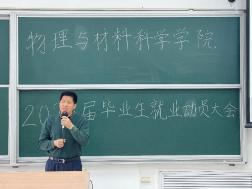 物理与材料科学学院
届毕业生就业动员大会